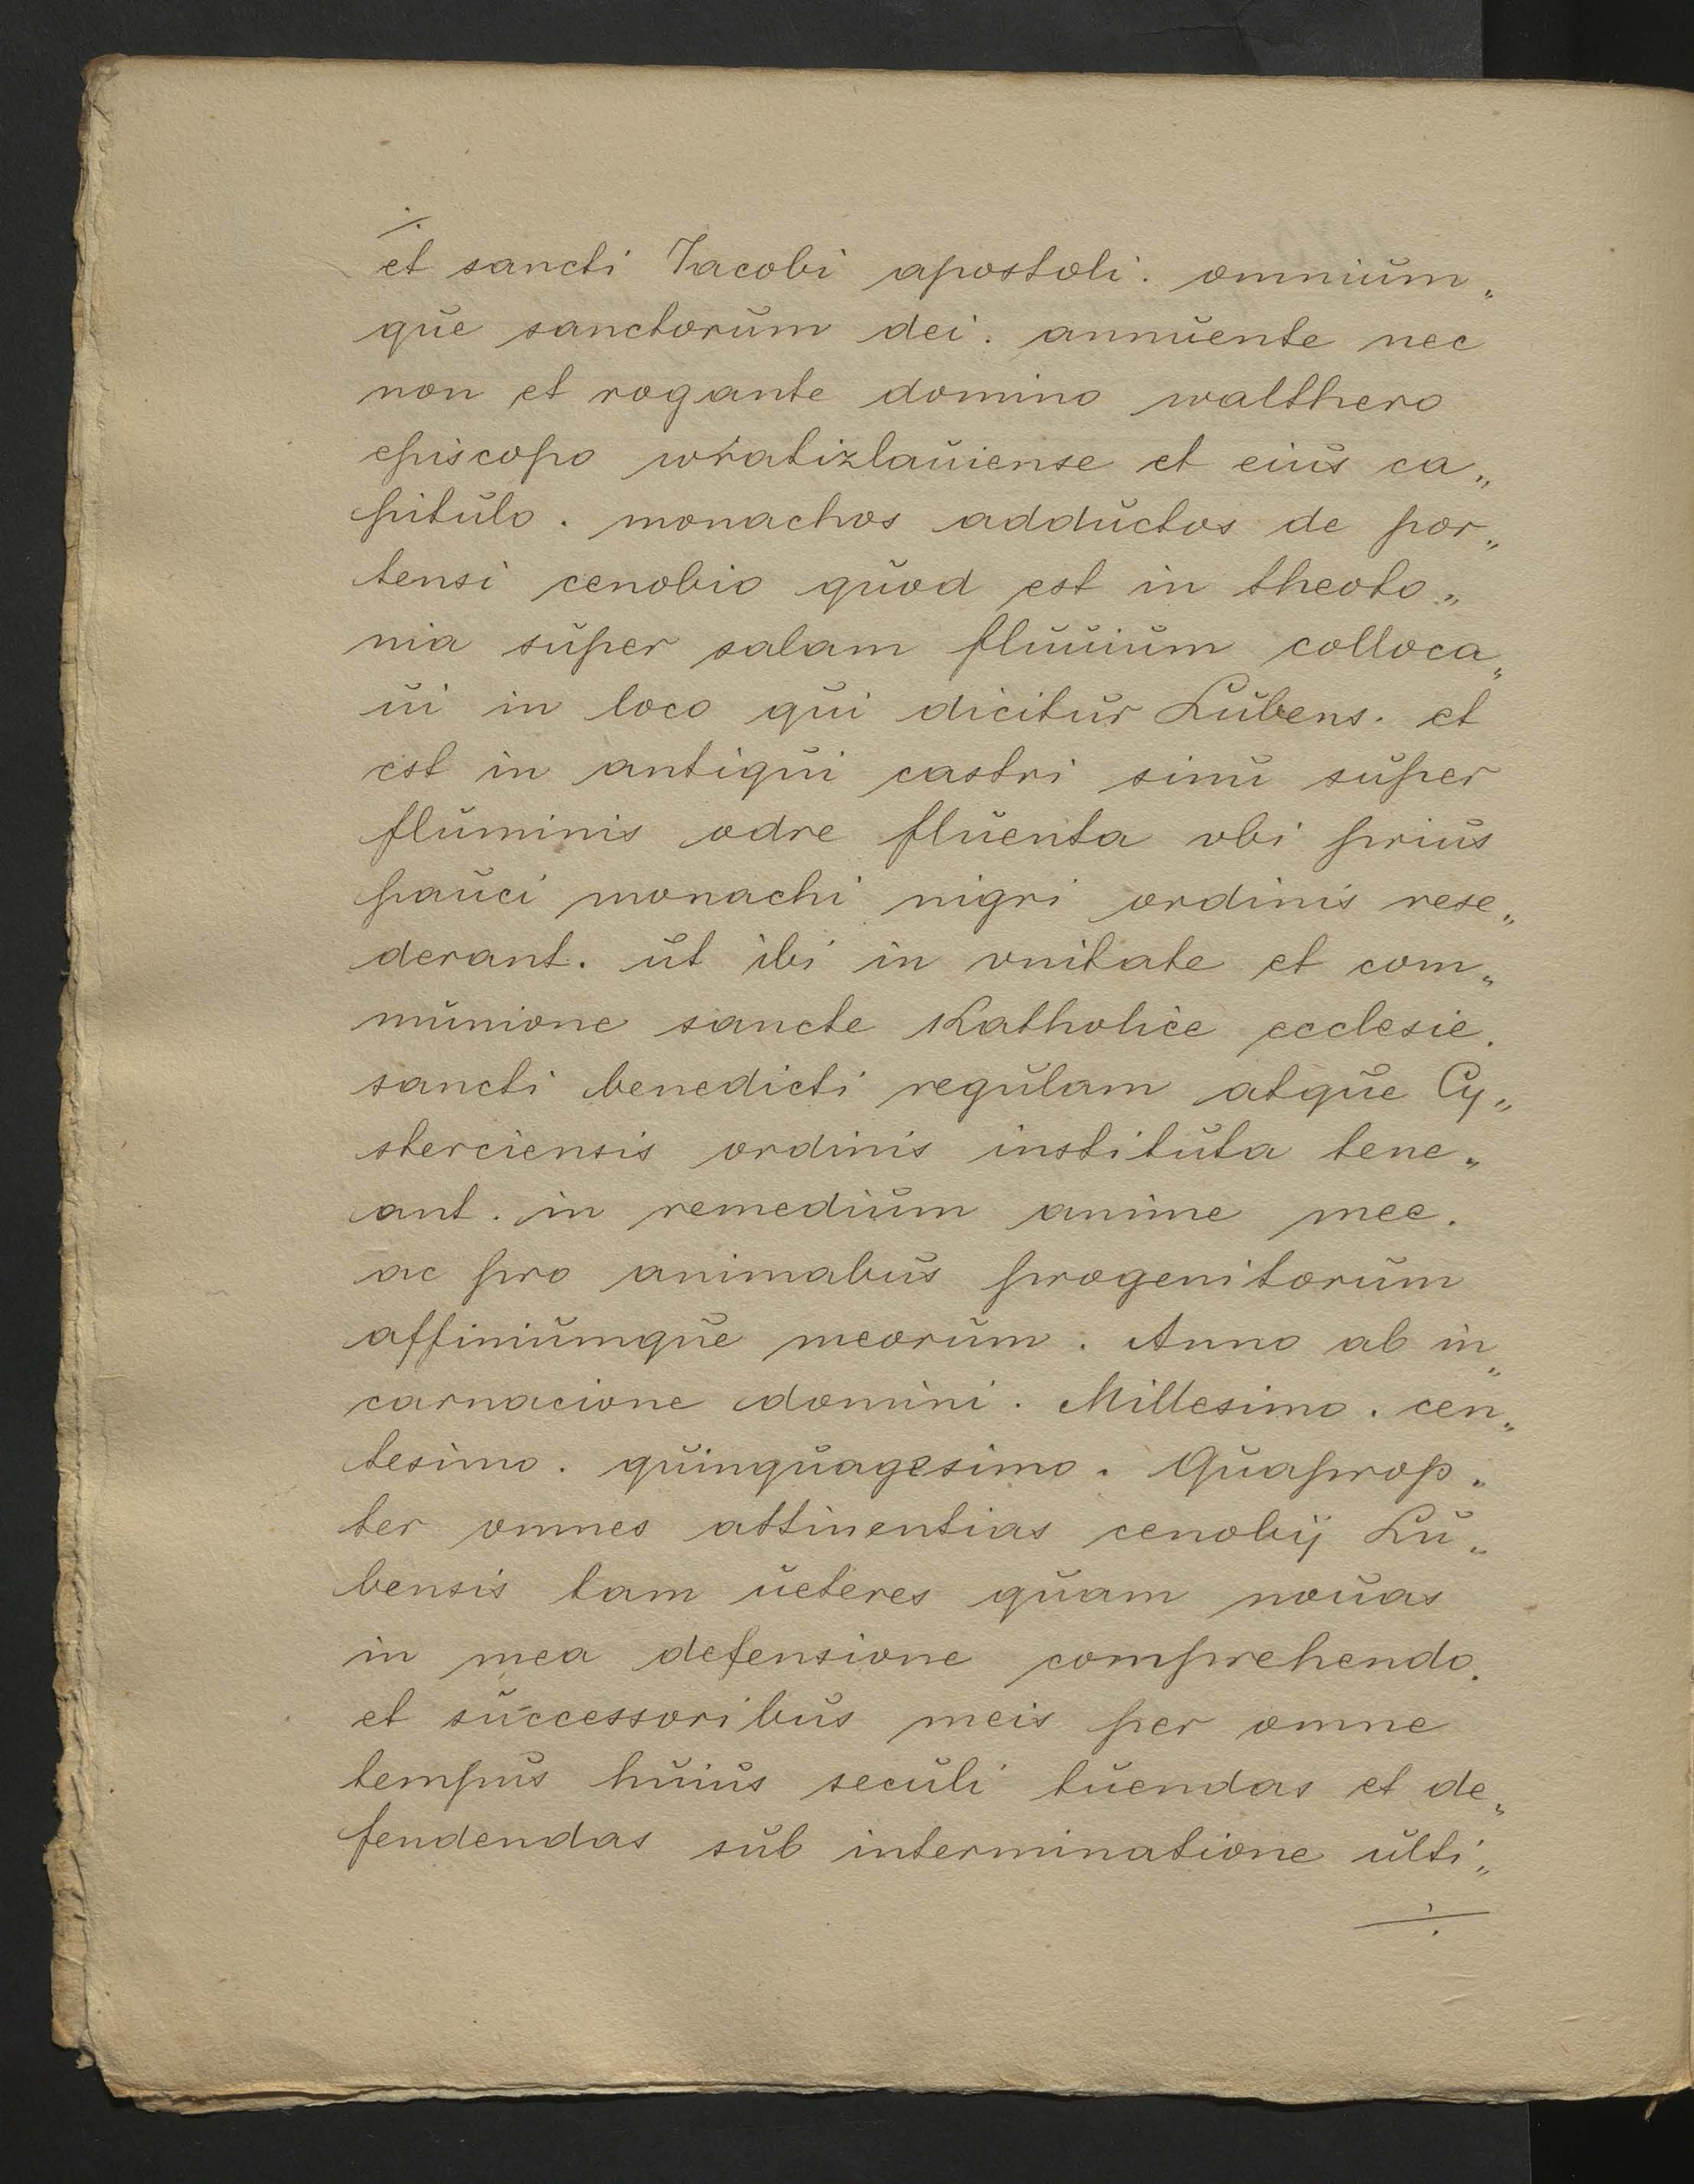 ÷
et sancti Jacobi apostoli. omnium„
que sanctorum dei. annuente nec
non et rogante domino walthero
episcopo wratizlauiense et eius ca„
pitulo. monachos adductos de por„
tensi cenobio quod est in theoto„
nia super salam fluuium colloca„
ui in loco qui dicitur Lubens. et
est in antiqui castri sinu super
fluminis odre fluenta vbi prius
pauci monachi nigri ordinis rese„
derant. ut ibi in vnitate et com„
munione sancte Katholice ecclesie.
sancti benedicti regulam atque Cy„
sterciensis ordinis instituta tene„
ant. in remedium anime mee.
ac pro animabus progenitorum
affiniumque meorum. Anno ab in„
carnacione domini. Millesimo. cen„
tesimo. quinquagesimo. Quaprop„
ter omnes attinentias cenobij Lu„
bensis tam ueteres quam nouas
in mea defensione comprehendo.
et successoribus meis per omne
tempus huius seculi tuendas et de„
fendendas sub interminatione ulti„
÷